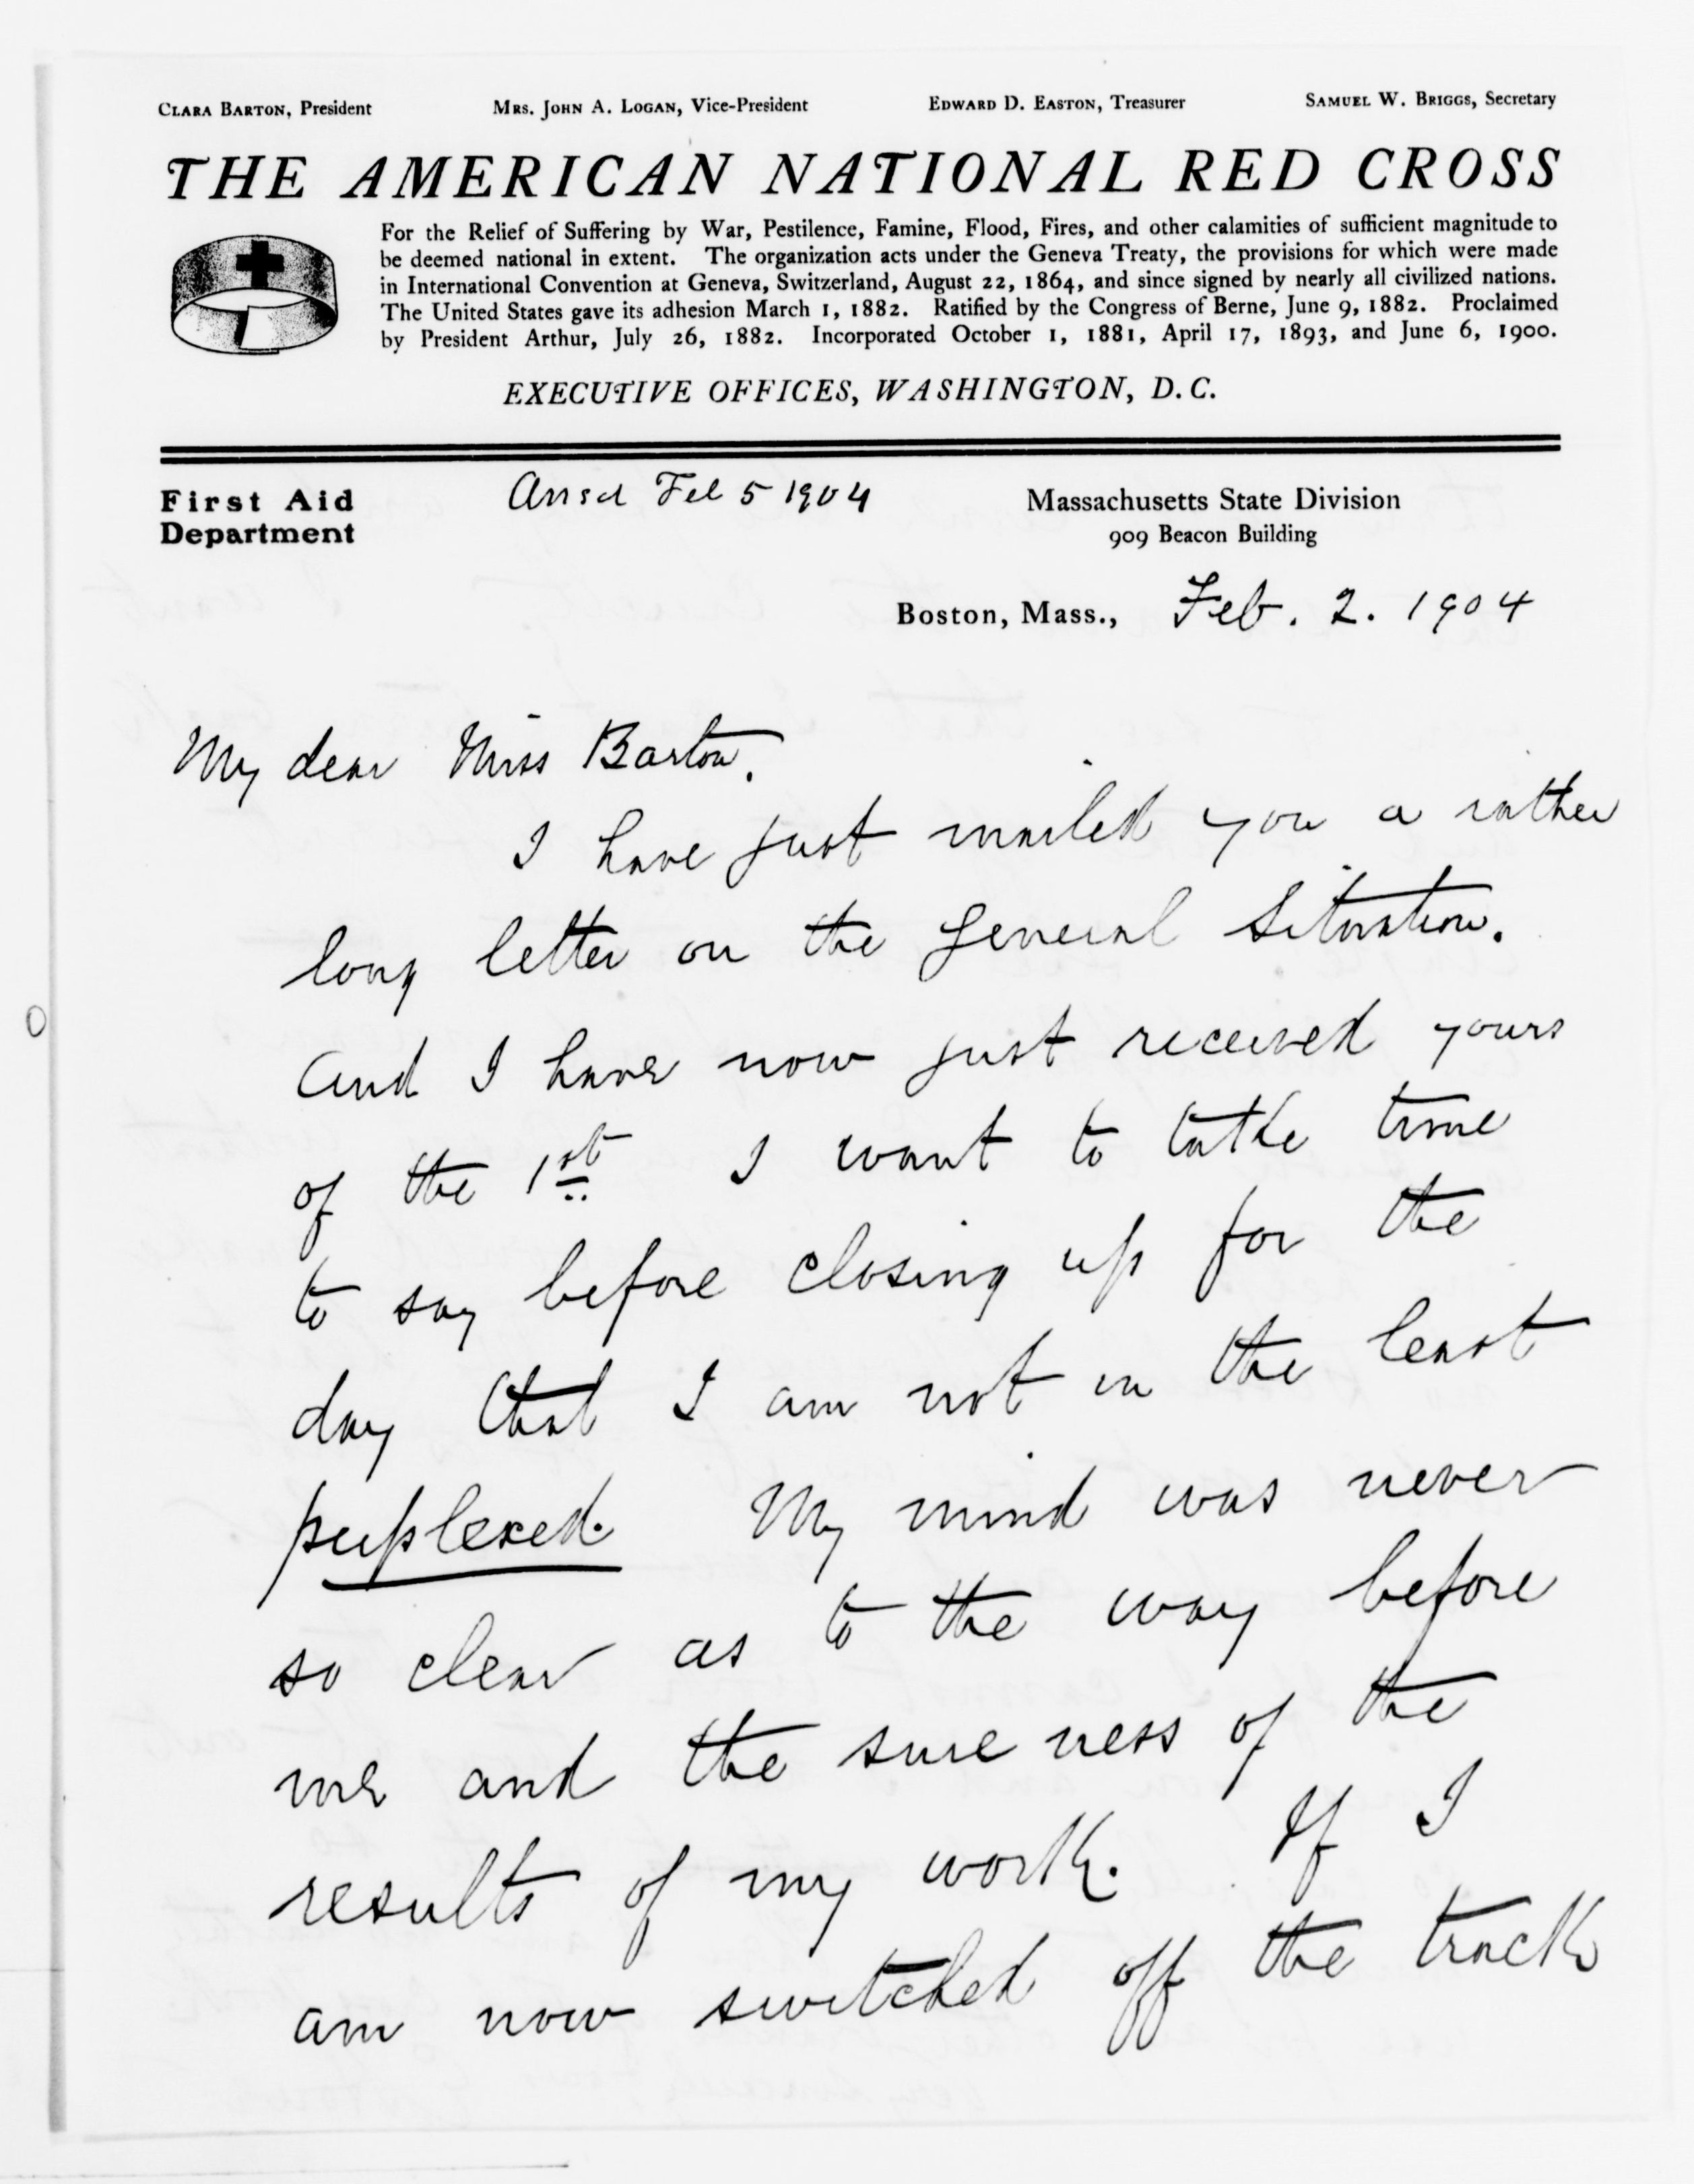 CLARA BARTON, President MRS. JOHN A. LOGAN, Vice-President EDWARD D. EASTON, Treasurer SAMUEL W. BRIGGS, Secretary
THE AMERICAN NATIONAL RED CROSS
For the Relief of Suffering by War, Pestilence, Famine, Flood, Fires, and other calamities of sufficient magnitude to
be deemed national in extent. The organization acts under the Geneva Treaty, the provisions for which were made
in International Convention at Geneva, Switzerland, August 22, 1864, and since signed by nearly all civilized nations.
The United States gave its adhesion March 1, 1882. Ratified by the Congress of Berne, June 9, 1882. Proclaimed
by President Arthur, July 26, 1882. Incorporated October 1, 1881, April 17, 1893, and June 6, 1900.
EXECUTIVE OFFICES, WASHINGTON, D.C.
First Aid
Department
Ansd Feb 5 1904
Massachusetts State Division
909 Beacon Building
Boston, Mass., Feb. 2. 1904
My dear Miss Barton.
I have just mailed you a rather
long letter on the general situation.
And I have now just received yours
of the 1st I want to take time
to say before closing up for the
day that I am not in the least
perplexed. My mind was never
so clear as to the way before
me and the sure ness of the
results of my work. If I
am now switched off the track